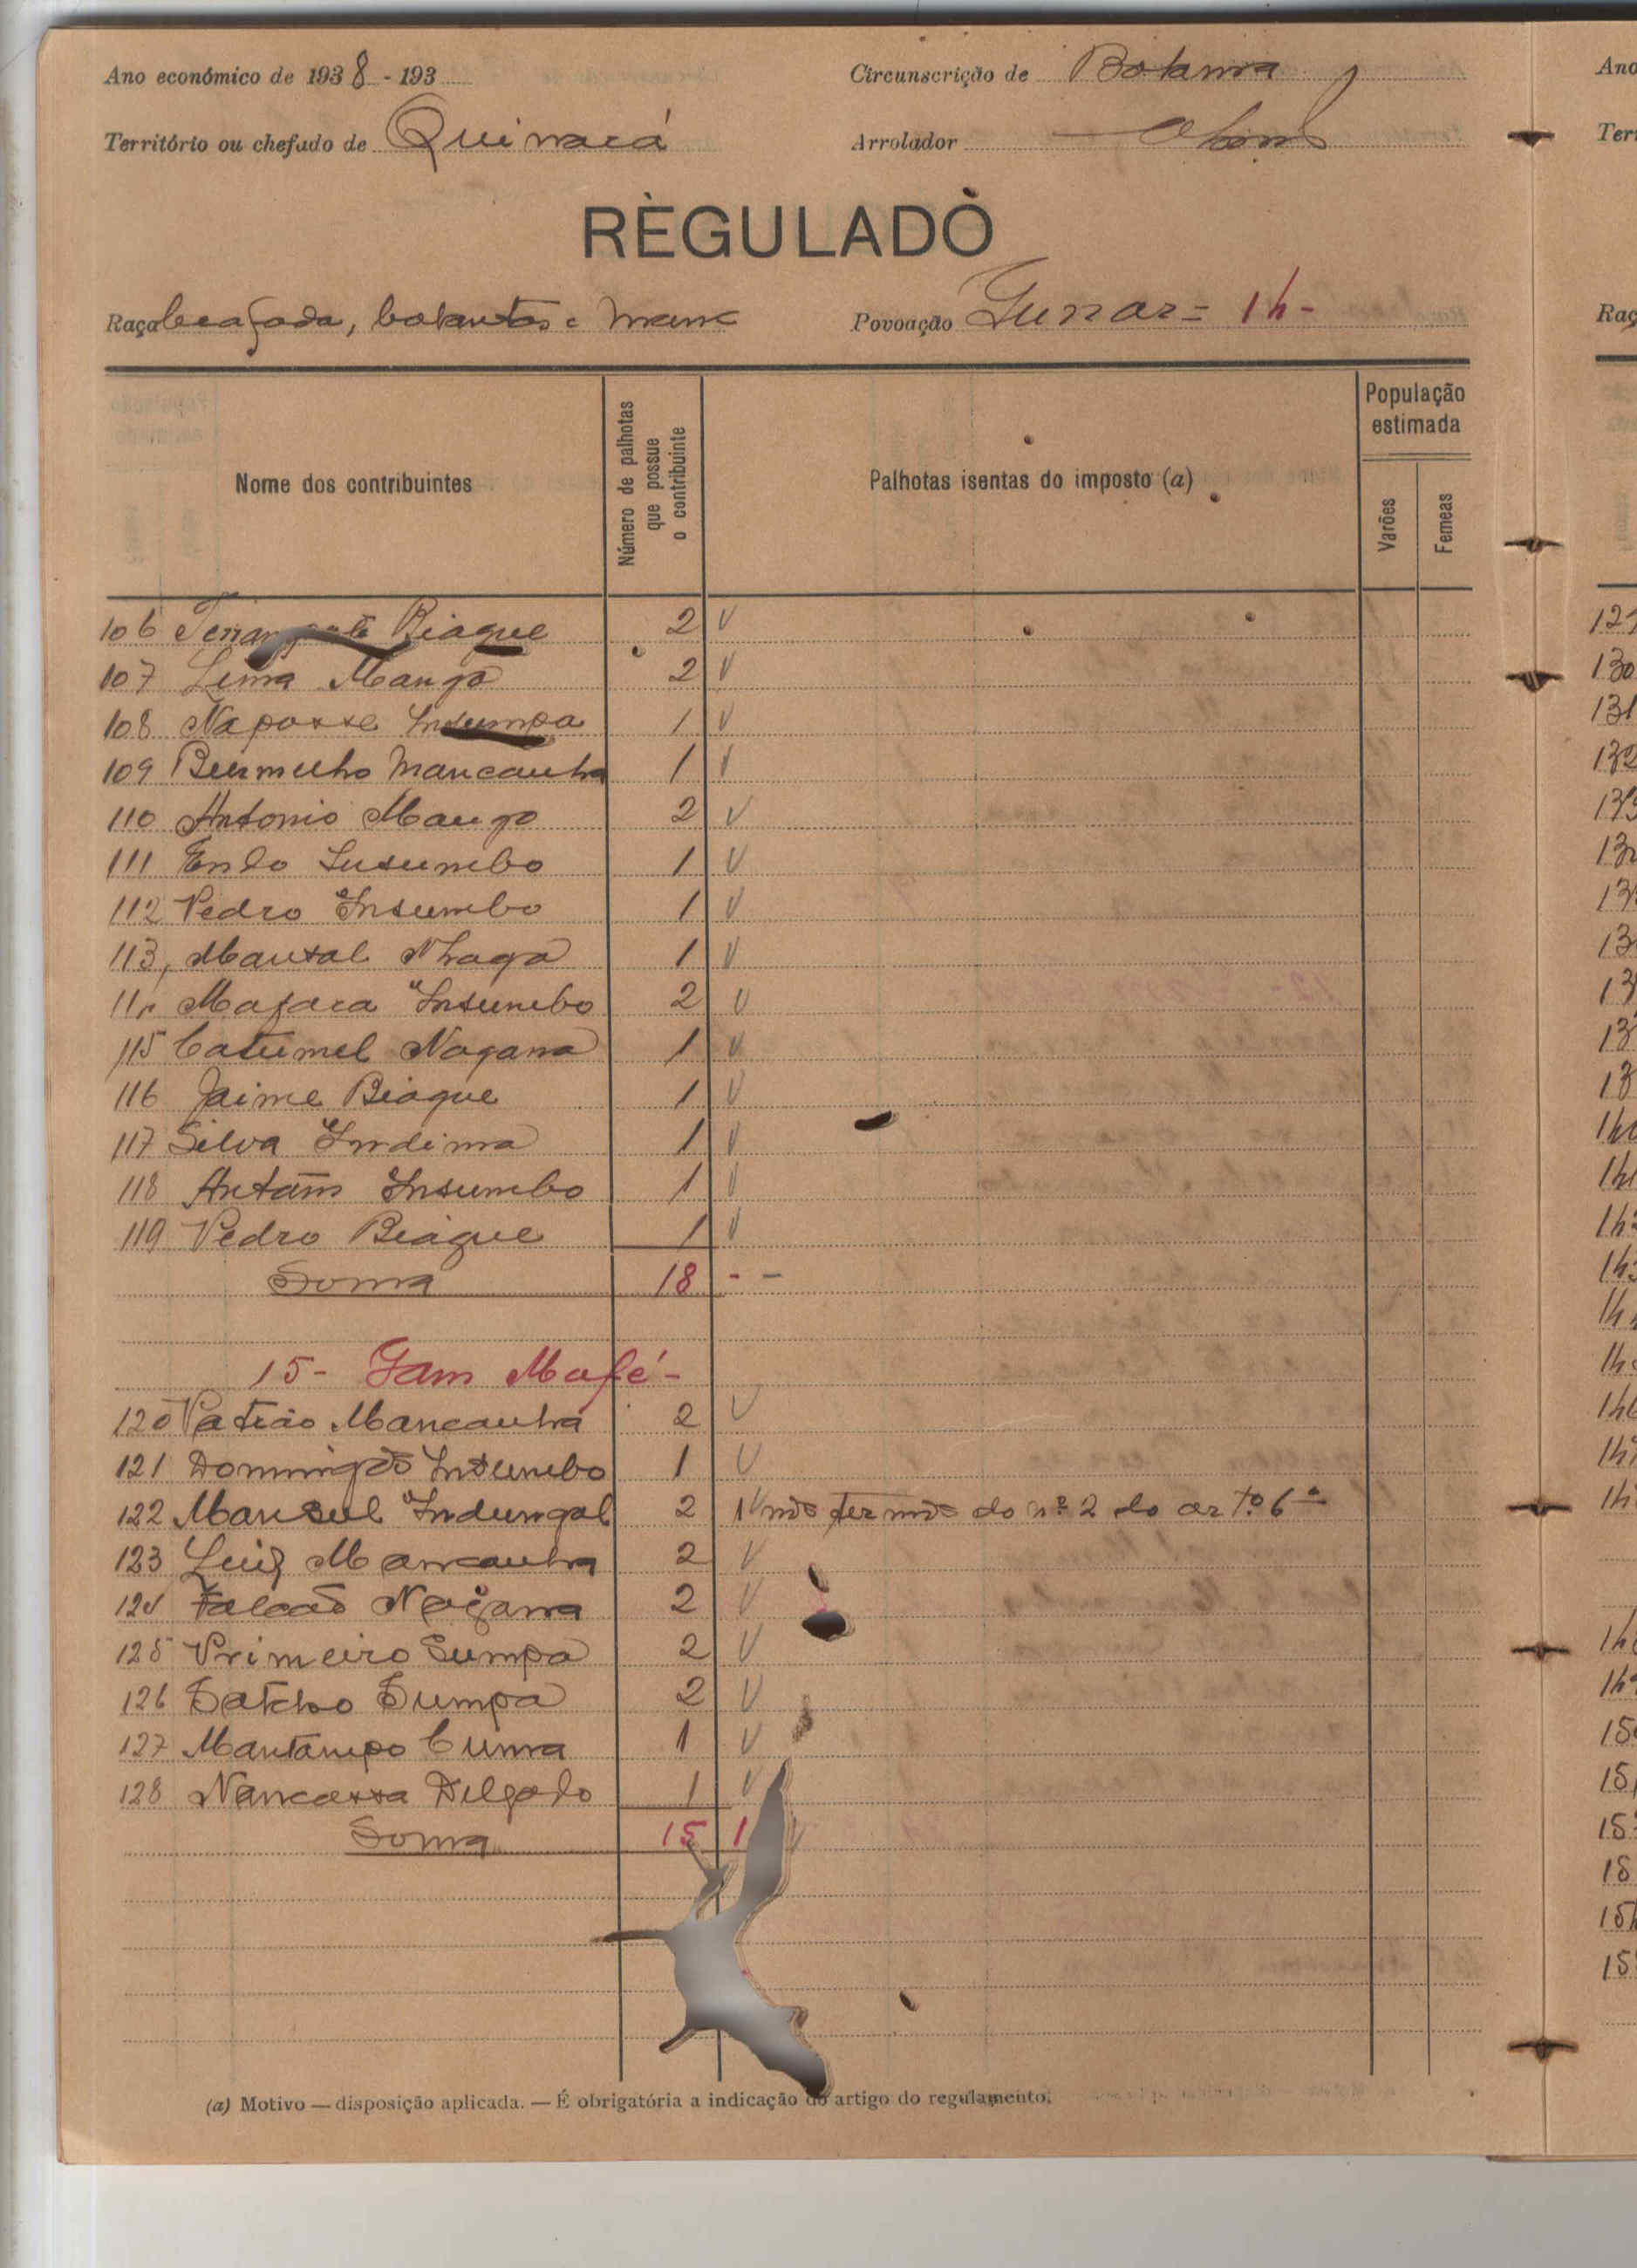 Ano económico de 1938 - 193
Circunscrição de Bolama
Território ou chefado de Quinará
Arrolador
RÈGULADÒ
Raça beafada, balantas e manc
Povoação Gunar = 14 -
Nome dos contribuintes
Número de palhotas que possue o contribuinte
Palhotas isentas do imposto (a)
População estimada
Varões
Femeas
106 Biague 2 V
107 Lima Mango 2 V
108 Naposse Insumpa 1 V
109 Bermelho Mancanha 1 V
110 Antonio Mango 2 V
111 Endo Insumbo 1 V
112 Pedro Insumbo 1 V
113, Mansal Nhaga 1 V
114 Mafaca Insumbo 2 V
115 Catumel Nagana 1 V
116 Jaime Biague 1 V
117 Silva Indima 1 V
118 Antam Insumbo 1 V
119 Pedro Biague 1 V
Soma 18 - -
15 - Gam Mafé -
120 Patrão Mancanha 2 V
121 Domingos Insumbo 1 V
122 Mansul Indungal 2 1 V nos termos do nº 2 do artº 6º
123 Luiz Mancanha 2 V
124 Falcão Nagana 2 V
125 Primeiro Sumpa 2 V
126 Satcho Sumpa 2 V
127 Mantampo Cunna 1 V
128 Nancassa Delgado 1 V
Soma 15 1
(a) Motivo — disposição aplicada. — É obrigatória a indicação do artigo do regulamento.
Ano
Ter
Raç
130
131
132